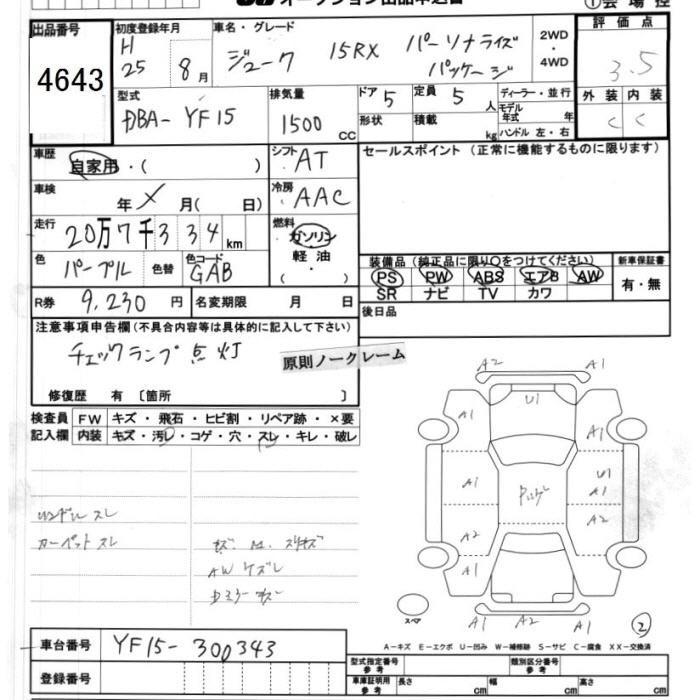 オークション出品申込書
①会場控
出品番号
4643
初度登録年月
H 25 8月
車名・グレード
ジューク 15RX パーソナライズ
パッケージ
2WD
・
4WD
評価点
3.5
型式
DBA- YF15
排気量
1500 CC
ドア 5
定員 5 人
形状
積載 kg
ディーラー・並行
モデル年式 年
ハンドル 左・右
外装 内装
C C
車歴
自家用・( )
シフト AT
セールスポイント (正常に機能するものに限ります)
車検
年 X 月( 日)
冷房 AAC
走行
20万7千334km
燃料
ガソリン
軽油
( ・ )
色
パープル
色替
色コード
GAB
装備品 (純正品に限り○をつけてください)
PS PW ABS エアB AW
SR ナビ TV カワ
新車保証書
有・無
R券 9,230 円
名変期限 月 日
後日品
注意事項申告欄 (不具合内容等は具体的に記入して下さい)
チェックランプ 点灯
原則ノークレーム
修復歴 有 〔箇所 〕
検査員
記入欄
FW キズ・飛石・ヒビ割・リペア跡・×要
内装 キズ・汚レ・コゲ・穴・スレ・キレ・破レ
ハンドル スレ
カーペット スレ
AW ケズレ
A2 A1
U1
A1 A1
A1 U1
A1
A2 A2
A1
スペア
A1 A2 A1
②
A－キズ E－エクボ U－凹み W－補修跡 S－サビ C－腐食 XX－交換済
車台番号 YF15-300343
登録番号
型式指定番号
参考
類別区分番号
参考
車庫証明用
参考
長さ cm 幅 cm 高さ cm